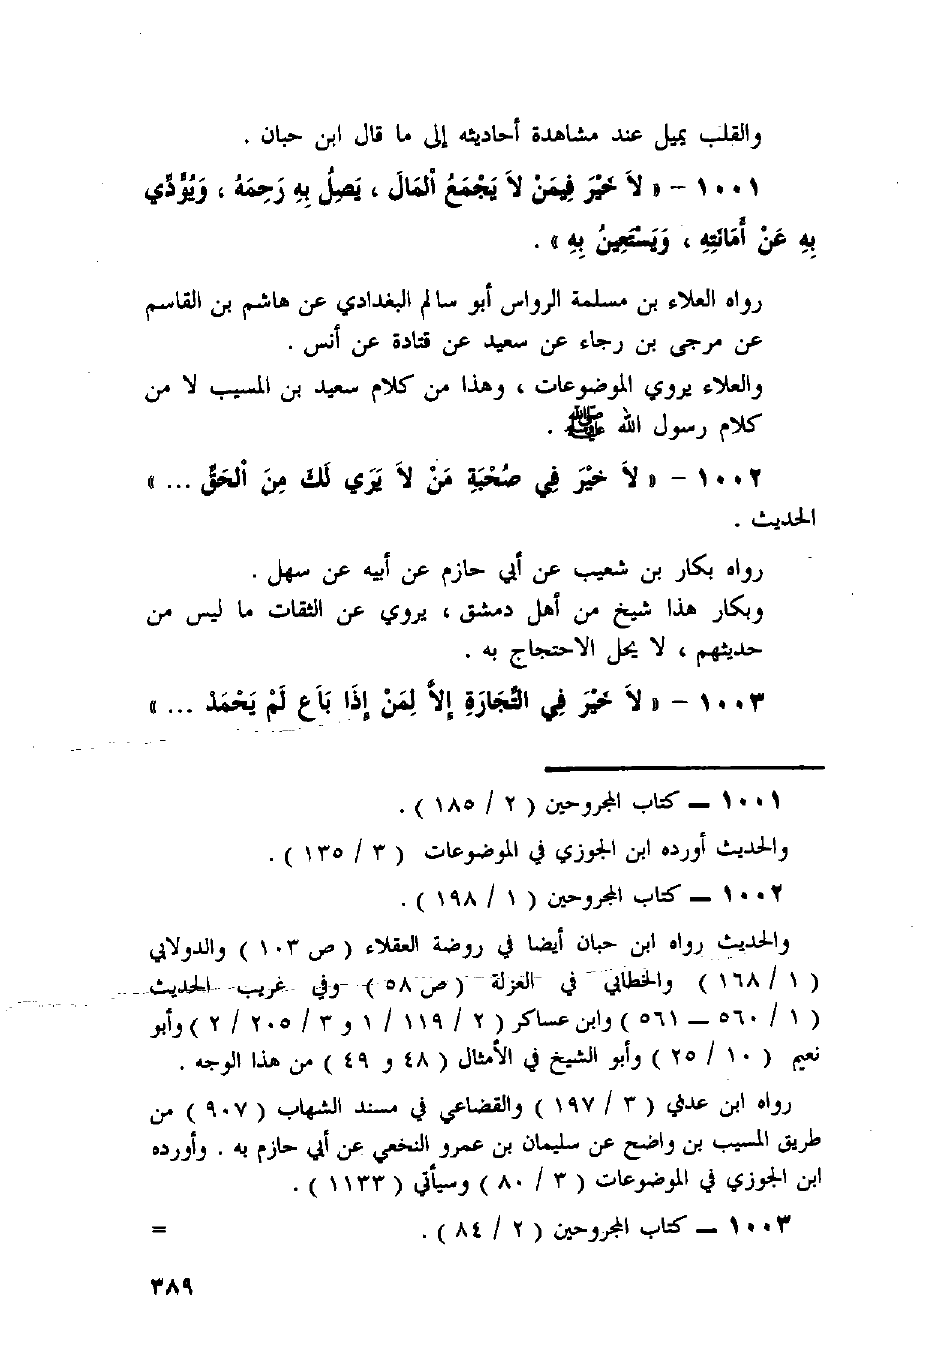 والقلب يميل عند مشاهدة أحاديثه إلى ما قال ابن حبان .
١٠٠١ – « لاَ خَيْرَ فِيمَنْ لاَ يَجْمَعُ اْلمَالَ ، يَصِلُ بِهِ رَحِمَهُ ، وَيُؤَدِّي
بِهِ عَنْ أَمَانَتِهِ ، وَيَسْتَعِينُ بِهِ » .
رواه العلاء بن مسلمة الرواس أبو سالم البغدادي عن هاشم بن القاسم
عن مرجى بن رجاء عن سعيد عن قتادة عن أنس .
والعلاء يروي الموضوعات ، وهذا من كلام سعيد بن المسيب لا من
كلام رسول الله ﷺ .
١٠٠٢ – « لاَ خَيْرَ فِي صُحْبَةِ مَنْ لاَ يَرَي لَكَ مِنَ اْلحَقِّ ... »
الحديث .
رواه بكار بن شعيب عن أبي حازم عن أبيه عن سهل .
وبكار هذا شيخ من أهل دمشق ، يروي عن الثقات ما ليس من
حديثهم ، لا يحل الاحتجاج به .
١٠٠٣ – « لاَ خَيْرَ فِي التِّجَارَةِ إلاَّ لِمَنْ إِذَا بَاَع لَمْ يَحْمَدْ ... »
١٠٠١ — كتاب المجروحين ( ٢ / ١٨٥ ) .
والحديث أورده ابن الجوزي في الموضوعات ( ٣ / ١٣٥ ) .
١٠٠٢ — كتاب المجروحين ( ١ / ١٩٨ ) .
والحديث رواه ابن حبان أيضا في روضة العقلاء ( ص ١٠٣ ) والدولابي
( ١ / ١٦٨ ) والخطابي في العزلة ( ص ٥٨ ) وفي غريب الحديث
( ١ / ٥٦٠ — ٥٦١ ) وابن عساكر ( ٢ / ١١٩ / ١ و ٣ / ٢٠٥ / ٢ ) وأبو
نعيم ( ١٠ / ٢٥ ) وأبو الشيخ في الأمثال ( ٤٨ و ٤٩ ) من هذا الوجه .
رواه ابن عدي ( ٣ / ١٩٧ ) والقضاعي في مسند الشهاب ( ٩٠٧ ) من
طريق المسيب بن واضح عن سليمان بن عمرو النخعي عن أبي حازم به . وأورده
ابن الجوزي في الموضوعات ( ٣ / ٨٠ ) وسيأتي ( ١١٣٣ ) .
١٠٠٣ — كتاب المجروحين ( ٢ / ٨٤ ) . =
٣٨٩